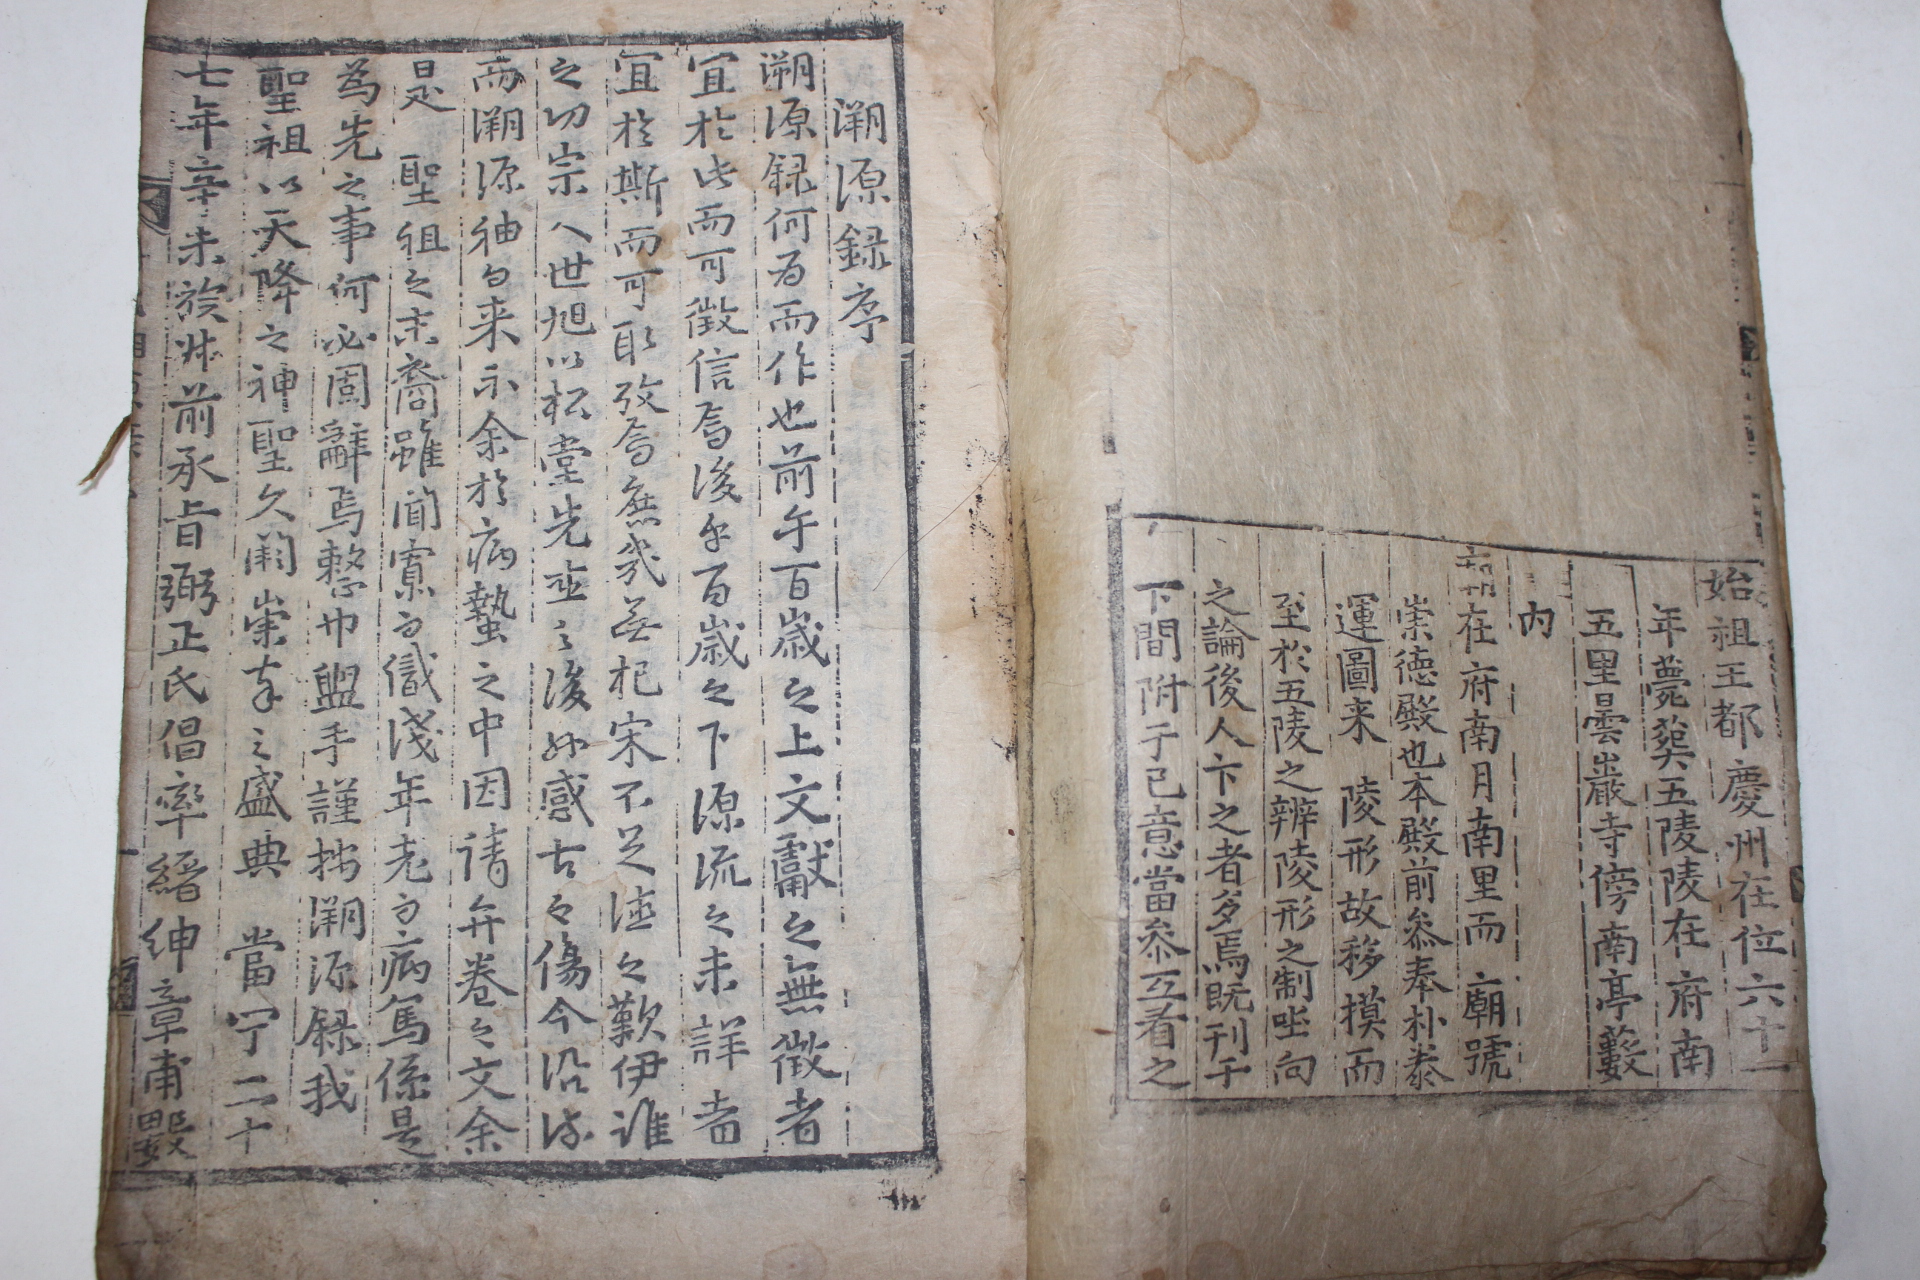 始祖王都慶州在位六十一
年薨葬五陵陵在府南
五里曇巖寺傍南亭藪
内
在府南月南里而廟號
崇德殿也本殿前叅奉朴泰
運圖来陵形故移摸而
至於五陵之辨陵形之制坐向
之論後人卞之者多焉既刊于
下間附于已意當叅互看之
溯源錄序
溯源録何为而作也前乎百歲之上文獻之無徵者
宜於此而可徵信焉後乎百歲之下源流之未詳者
宜於斯而可取攷焉庶幾無杞宋不足徵之歎伊誰
之功宗人世旭以松堂先亚之後感古之傷今沿流
而溯源袖而来示余於病蟄之中因請弁卷之文余
是聖祖之末裔雖聞寡而儎淺年老而病篤係是
為先之事何必固辭焉整巾盥手謹按溯源録我
聖祖以天降之神聖久闕崇奉之盛典當宁二十
七年辛未族叔前承旨弼正氏倡率縉紳章甫